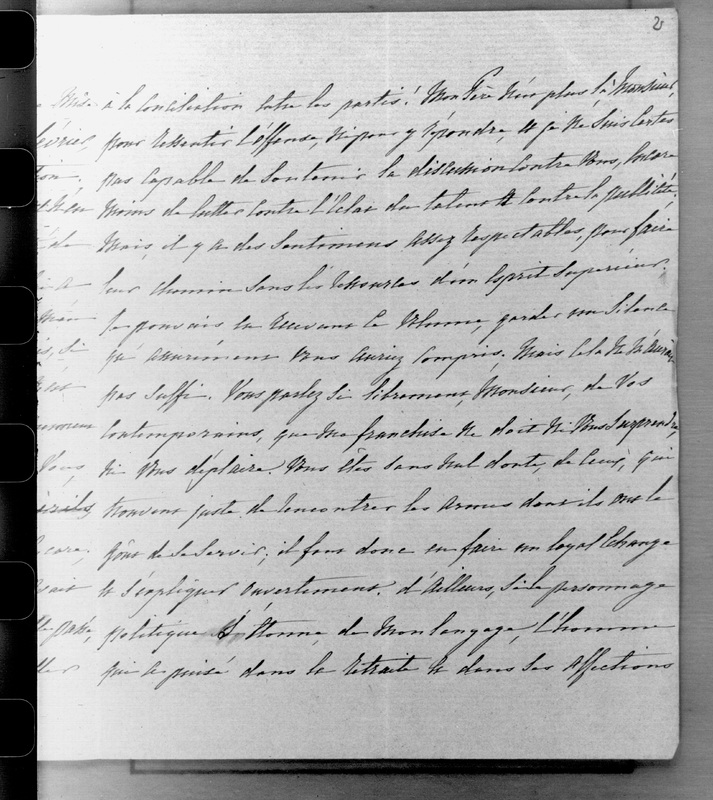 2
à la Conciliation entre les partis! Mon Père n'est plus là Monsieur,
pour ressentir l'offense, ni pour y répondre, et je ne suis certes
pas capable de soutenir la discussion contre Vous, encore
moins de lutter contre l'éclat du talent et contre la publicité.
Mais, il y a des sentimens assez respectables, pour faire
leur chemin sans les ressources d'un Esprit Supérieur.
Je pouvais en recevant le Volume, garder un Silence
qu'assurément Vous auriez compris. Mais cela ne m'aurait
pas suffi. Vous parlez si librement, Monsieur, de Vos
Contemporains, que ma franchise ne doit ni Vous Surprendre,
ni Vous déplaire. Vous êtes sans nul doute, de Ceux, qui
trouvent juste de rencontrer les armes dont ils ont le
goût de se Servir; il faut donc en faire un loyal Echange
et s'expliquer ouvertement. d'Ailleurs, si le personnage
politique s'étonne, de Mon langage, l'homme
qui a puisé dans la retraite et dans ses affections